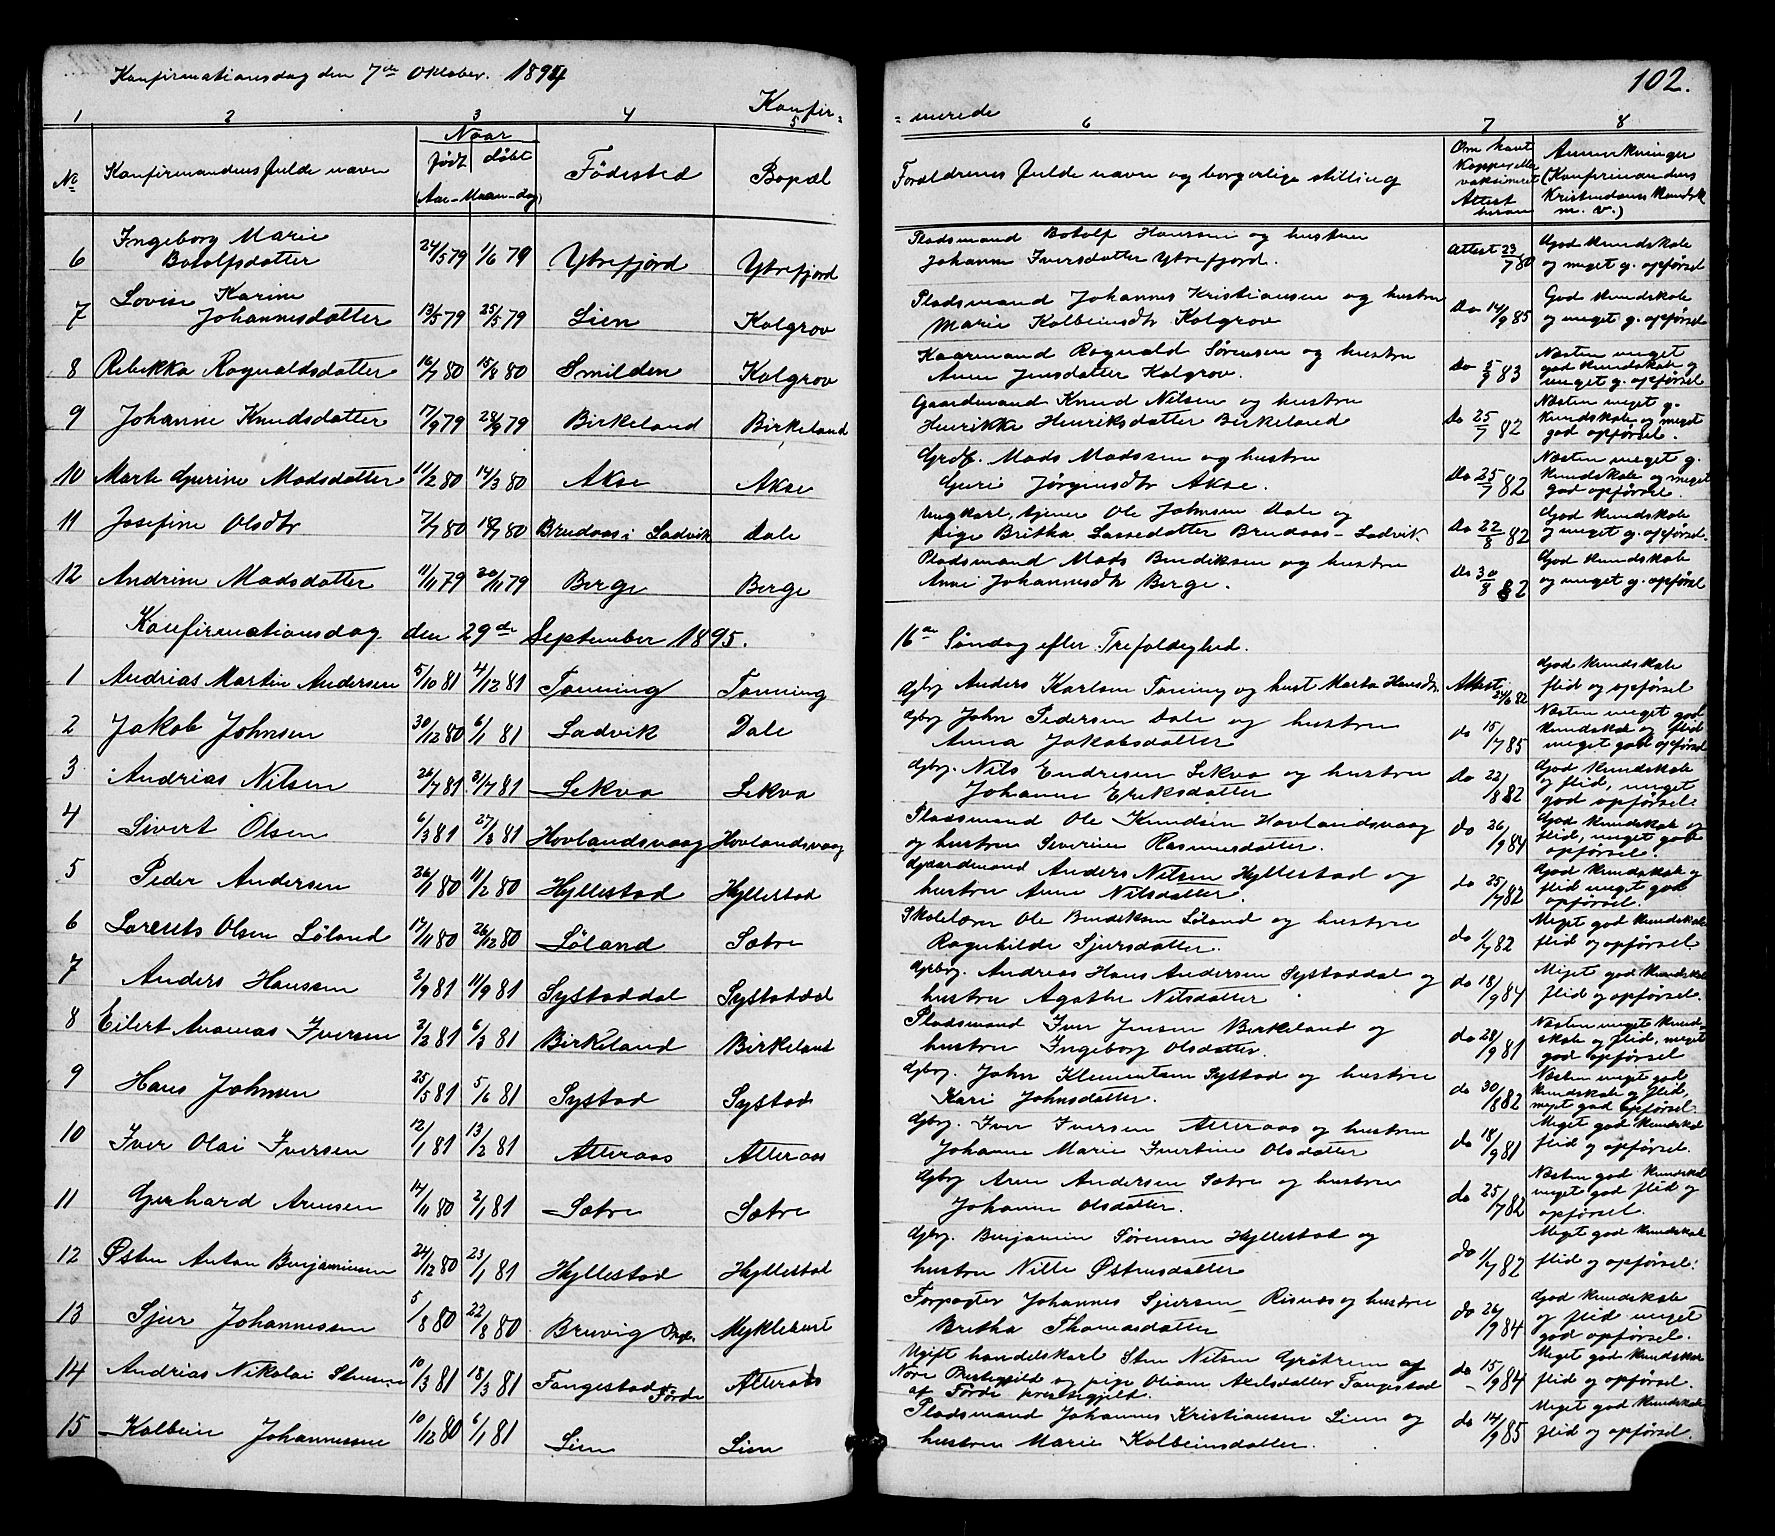 Konfirmationsdag den 7de Oktober. 1894
Konfir-
-merede
102.
1 2 3 4 5. 6 7 8
No Konfirmandens fulde navn
Naar
født døbt
(Aar-Maan-dag)
Fødested
Bopæl
Forældrenes fulde navn og borgerlige stilling
Om havt
Kopper eller
vaksineret
Attest
herom
Anmerkninger
(Konfirmandens
Kristendoms kundsk
m. v.)
6 Ingeborg Marie
Botolfsdatter 24/5 79 1/6 79 Ytrefjord Ytrefjord
Pladsmand Botolf Hanssen og hustru
Johanne Iversdatter Ytrefjord.
Attest 23/7 80
God kundskab
og meget g. opførsel
7 Lovise Karine
Johannesdatter 13/5 79 25/5 79 Lien Kolgrov
Pladsmand Johannes Kristiansen og hustru
Marie Kolbeinsdtr Kolgrov
Do 14/9 85
God kundskab
og meget g. opførsel
8 Rebekka Rognaldsdatter 16/7 80 15/8 80 Smilden Kolgrov
Kaarmand Rognald Sørensen og hustru
Anne Jensdatter Kolgrov.
Do 5/9 83
Næsten meget
god kundskab og
meget g. opførsel
9 Johanne Knudsdatter 17/9 79 28/9 79 Birkeland Birkeland
Gaardmand Knud Nilsen og hustru
Henrikke Henriksdatter Birkeland
Do 25/7 82
Næsten meget g.
kundskab og meget
god opførsel.
10 Marte Gurine Madsdatter 11/2 80 14/3 80 Akse Akse
Grdbr. Mads Madssen og hustru
Guri Jørginsdtr Akse.
Do 25/7 82
Næsten meget g.
kundskab og meget
god opførsel.
11 Josefine Olsdtr 7/7 80 18/7 80 Brudaas i Ladvik Dale
Ungkarl, tjener Ole Johnsen Dale og
pige Britha Lassedatter Brudaas - Ladvik
Do 22/8 82
God kundskab
og meget g. opførsel.
12 Andrine Madsdatter 11/11 79 20/11 79 Berge Berge
Pladsmand Mads Bendiksen og hustru
Anne Johannesdtr Berge.
Do 30/8 82
God kundskab
og meget g. opførsel
Konfirmationsdag den 29de September 1895. 16de Søndag efter Trefoldighed.
1 Andrias Martin Andersen 5/10 81 4/12 81 Tønning Tønning
Gbrg Anders Karlsen Tønning og hust Marta Hansdtr
Attest 24/6 82
God kundskab
flid og opførsel
2 Jakob Johnsen 30/12 80 6/1 81 Ladvik Dale
Gbrg John Pedersen Dale og hustru
Anna Jakobsdatter
do 15/7 85
Næsten meget god
kundskab og flid
meget god opførsel
3 Andrias Nilsen 26/7 81 31/7 81 Lekva Lekva
Gbrg. Nils Endresen Lekva og hustru
Johanne Eriksdatter
do 22/8 82
God kundskab
og flid, meget
god opførsel.
4 Sivert Olsen 6/3 81 27/3 81 Hovlandsvaag Hovlandsvaag
Pladsmand Ole Knudsen Hovlandsvaag
og hustru Severine Rasmusdatter.
do 26/9 84
God kundskab og
flid, meget god
opførsel.
5 Peder Andersen 26/1 80 11/2 80 Hyllestad Hyllestad
Gaardmand Anders Nilsen Hyllestad og
hustru Anne Nilsdatter.
do 25/7 82
God kundskab og
flid meget god
opførsel.
6 Olsen Løland 17/11 80 26/12 80 Løland Sætre
Skolelærer Ole Bendiksen Løland og hustru
Ragnhilde Sjursdatter.
do 1/7 82
Meget god kundskab
flid og opførsel.
7 Anders Hanssen 2/9 81 11/9 81 Systaddal Systaddal
Gbrg. Andreas Hans Andersen Systaddal og
hustru Agathe Nilsdatter
do 18/9 84
Meget god kundskab
flid og opførsel.
8 Eilert Andreas Iversen 2/2 81 6/3 81 Birkeland Birkeland
Pladsmand Iver Jensen Birkeland og
hustru Ingeborg Olsdatter.
do 28/9 81
Næsten meget kund-
skab og flid, meget
god opførsel
9 Hans Johnsen 25/5 81 5/6 81 Systad Systad
Gbrg. John Klementsen Systad og hustru
Kari Johnsdatter.
do 30/8 82
Næsten meget god
kundskab og flid,
meget god opførsel.
10 Iver Olai Iversen 12/1 81 13/2 81 Atteraas Atteraas
Gbrg. Iver Iversen Atteraas og hustru
Johanne Marie Ivertine Olsdatter
do 18/9 81
Meget god kundskab
flid og opførsel.
11 Gerhard Arnesen 14/11 80 2/1 81 Sætre Sætre
Gbrg Arne Andersen Sætre og hustru
Johanne Olsdatter.
do 25/7 82
Næsten god kundskab
meget god flid og
opførsel.
12 Østen Anton Benjaminsen 24/12 80 23/1 81 Hyllestad Hyllestad
Gbrg. Benjamin Sørensen Hyllestad og
hustru Nille Østensdatter
do 1/7 82
Meget god kundskab
flid og opførsel.
13 Sjur Johannessen 5/8 80 22/8 80 Breivig Myklebust
Forpagter Johannes Sjursen Risnes og hustru
Britha Thomasdatter
do 26/9 84
God kundskab
og flid meget
god opførsel.
14 Andrias Nikolai Stensen 10/3 81 18/3 81 Tangestad Førde Atteraas
Ugift handelskarl Sten Nilsen af
Nore Prestegjeld og pige Oliane Akselsdatter Tangestad
af Førde prestegjeld.
do 15/9 84
Meget god kundskab
flid og opførsel.
15 Kolbein Johannessen 10/12 80 6/1 81 Lien Lien
Pladsmand Johannes Kristiansen Lien og
hustru Marie Kolbeinsdatter.
do 14/9 85
Meget god kundskab
flid og opførsel.